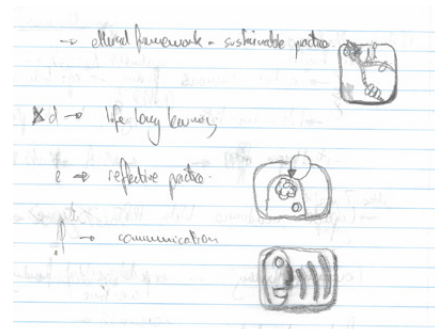 → ethical framework - sustainable practice.
d → life long learning
e → reflective practice.
f → communication